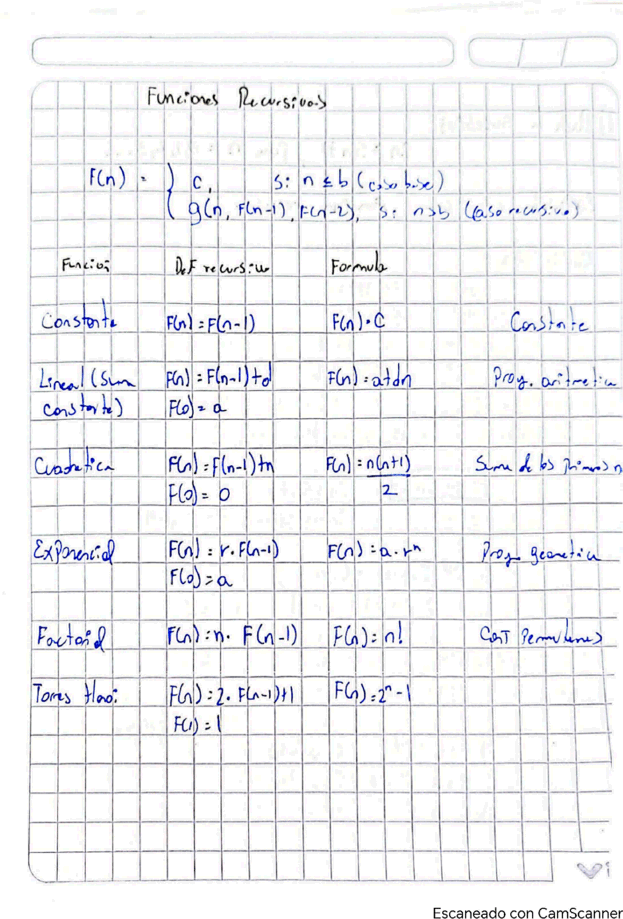 Funciones Recursivas
F(n) = { c, si n ≤ b (caso base)
g(n, F(n-1), F(n-2), si n>b (caso recursivo)
Función Def recursiva Formula
Constante F(n) = F(n-1) F(n) = C Constante
Lineal (Suma F(n) = F(n-1)+d F(n) = a+dn Prog. aritmetica
constante) F(0) = a
Cuadratica F(n) = F(n-1)+n F(n) = n(n+1) Suma de los primeros n
F(0) = 0 2
Exponencial F(n) = r. F(n-1) F(n) = a . rⁿ Prog. geometica
F(0) = a
Factorial F(n) = n. F(n-1) F(n) = n! Cant Permutaciones
Torres Hanoi F(n) = 2. F(n-1)+1 F(n) = 2ⁿ-1
F(1) = 1
Escaneado con CamScanner